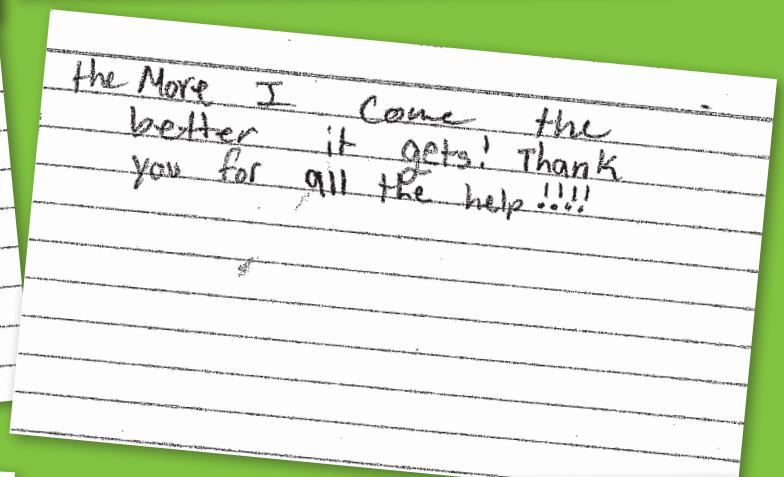 the More I Come the
better it gets! Thank
you for all the help!!!!